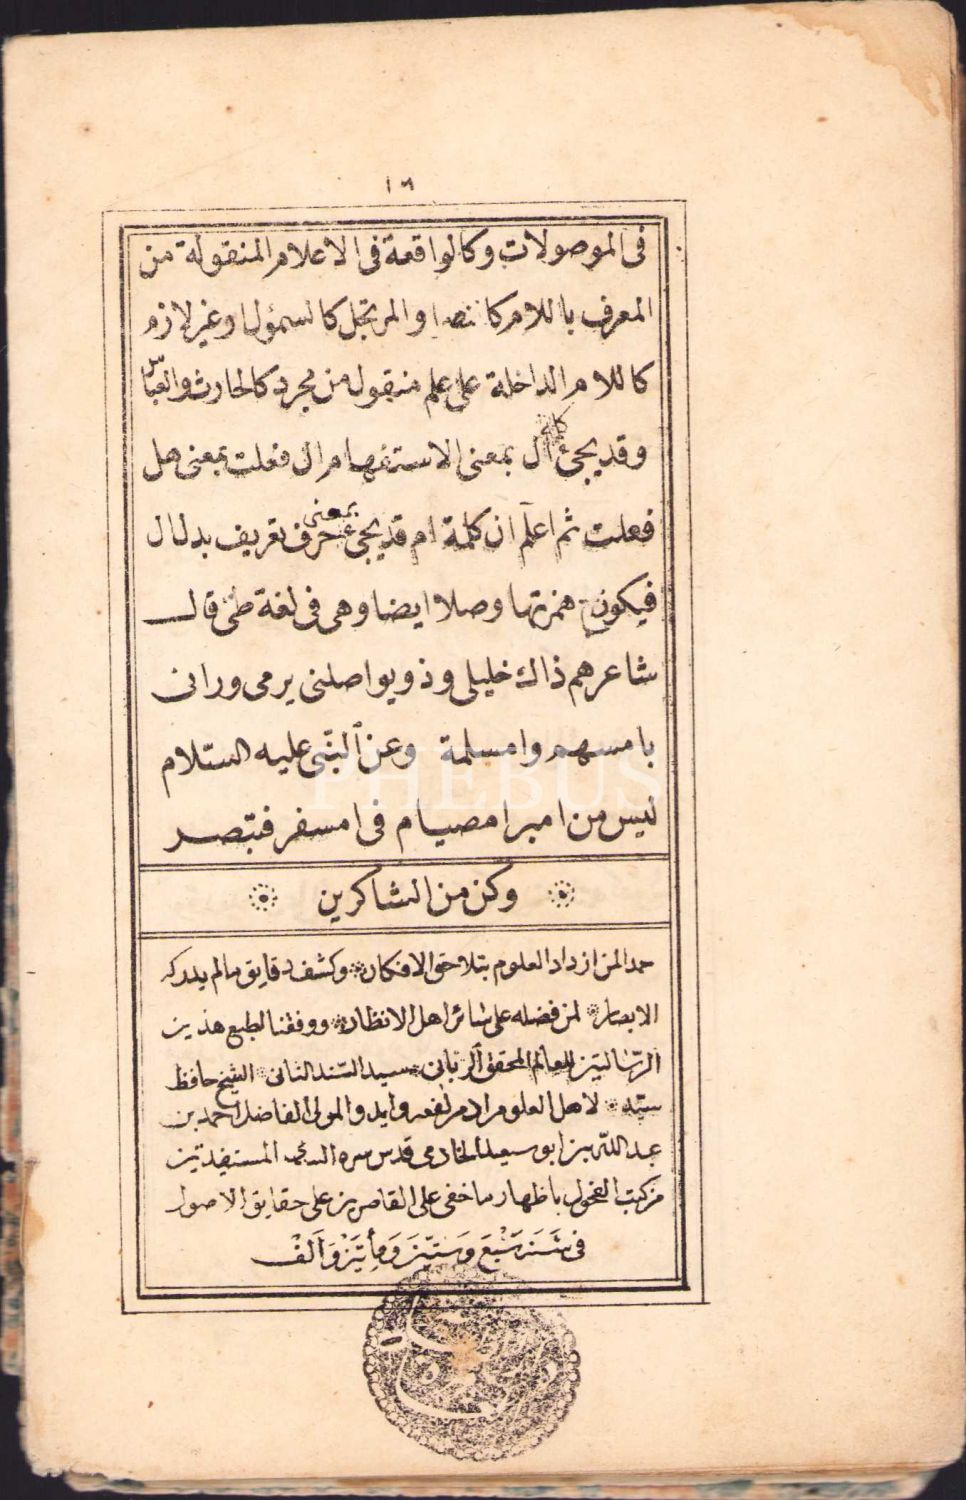 ١٦
فى الموصولات وكالواقعة فى الاعلام المنقولة من
المعرف باللام كالنصر او المرتجل كالسمؤل او غير لازم
كاللام الداخلة على علم منقول من مجرد كالحارث والعباس
وقد يجئ كلمة ال بمعنى الاستفهام ال فعلت بمعنى هل
فعلت ثم اعلم ان كلمة ام قد يجئ بمعنى حرف تعريف بدل ال
فيكون همزتها وصلا ايضا وهى فى لغة طئ قال
شاعرهم ذاك خليلى وذو يواصلنى يرمى ورائ
بامسهم وامسلمة وعن النبى عليه السلام
ليس من امبر امصيام فى امسفر فتبصر
وكن من الشاكرين
حمدا لمن ازداد العلوم بتلاحق الافكار وكشف دقايق مالم يدركه
الابصار لمن فضله على سائر اهل الانظار ووفقنا لطبع هذين
الرسالتين للعالم المحقق الربانى سيد السند الثانى الشيخ حافظ
سيد لاهل العلوم ادم نفعه وايد والمولى الفاضل احمد بن
عبد الله بن ابو سعيد الخادمى قدس سره المستفيدين
من كتب الفحول باظهار ما خفى على القاصرين على حقايق الاصول
فى سنة سبع وستين ومأتين والف
PHEBUS